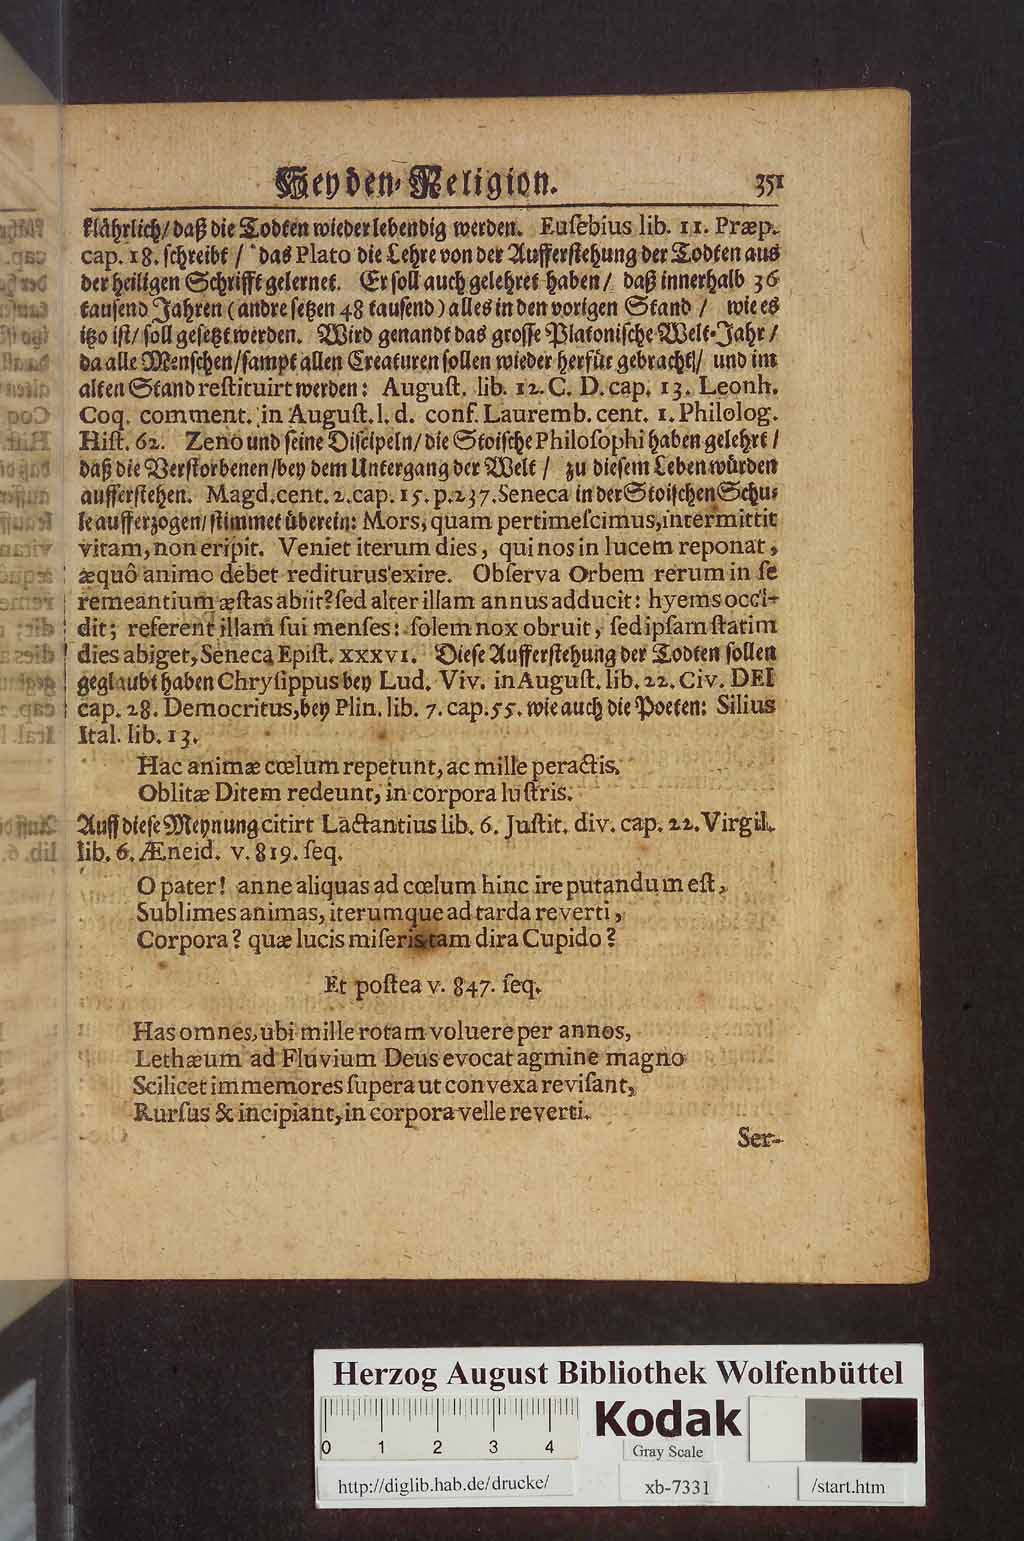 Heyden-Religion. 351
klährlich/ daß die Todten wieder lebendig werden. Euſebius lib. 11. Præp.
cap. 18. ſchreibt / das Plato die Lehre von der Aufferſtehung der Todten aus
der heiligen Schrifft gelernet. Er ſoll auch gelehret haben / daß innerhalb 36
tauſend Jahren (andre ſetzen 48 tauſend) alles in den vorigen Stand / wie es
itzo iſt/ ſoll geſetzt werden. Wird genandt das groſſe Platoniſche Welt-Jahr /
da alle Menſchen/ ſampt allen Creaturen ſollen wieder herfür gebracht/ und im
alten Stand reſtituirt werden: Auguſt. lib. 12. C. D. cap. 13. Leonh.
Coq. comment. in Auguſt. l. d. conf. Lauremb. cent. 1. Philolog.
Hiſt. 62. Zeno und ſeine Diſcipeln/ die Stoiſche Philoſophi haben gelehrt /
daß die Verſtorbenen/ bey dem Untergang der Welt / zu dieſem Leben würden
aufferſtehen. Magd. cent. 2. cap. 15. p. 237. Seneca in der Stoiſchen Schu-
le aufferzogen/ ſtimmet überein: Mors, quam pertimeſcimus, intermittit
vitam, non eripit. Veniet iterum dies, qui nos in lucem reponat,
æquô animo debet rediturus exire. Obſerva Orbem rerum in ſe
remeantium æſtas abiit? ſed alter illam annus adducit: hyems occi-
dit; referent illam ſui menſes: ſolem nox obruit, ſed ipſam ſtatim
dies abiget, Seneca Epiſt. XXXVI. Dieſe Aufferſtehung der Todten ſollen
geglaubt haben Chryſippus bey Lud. Viv. in Auguſt. lib. 22. Civ. DEI
cap. 28. Democritus, bey Plin. lib. 7. cap. 55. wie auch die Poeten: Silius
Ital. lib. 13.
Hac animæ cœlum repetunt, ac mille peractis,
Oblitæ Ditem redeunt, in corpora luſtris.
Auff dieſe Meynung citirt Lactantius lib. 6. Juſtit. div. cap. 22. Virgil.
lib. 6. Æneid. v. 819. ſeq.
O pater! anne aliquas ad cœlum hinc ire putandum eſt,
Sublimes animas, iterumque ad tarda reverti,
Corpora? quæ lucis miſeris tam dira Cupido?
Et poſtea v. 847. ſeq.
Has omnes, ubi mille rotam voluere per annos,
Lethæum ad Fluvium Deus evocat agmine magno
Scilicet immemores ſupera ut convexa reviſant,
Rurſus & incipiant, in corpora velle reverti.
Ser-
Herzog August Bibliothek Wolfenbüttel
0 1 2 3 4
Kodak
Gray Scale
http://diglib.hab.de/drucke/ xb-7331 /start.htm